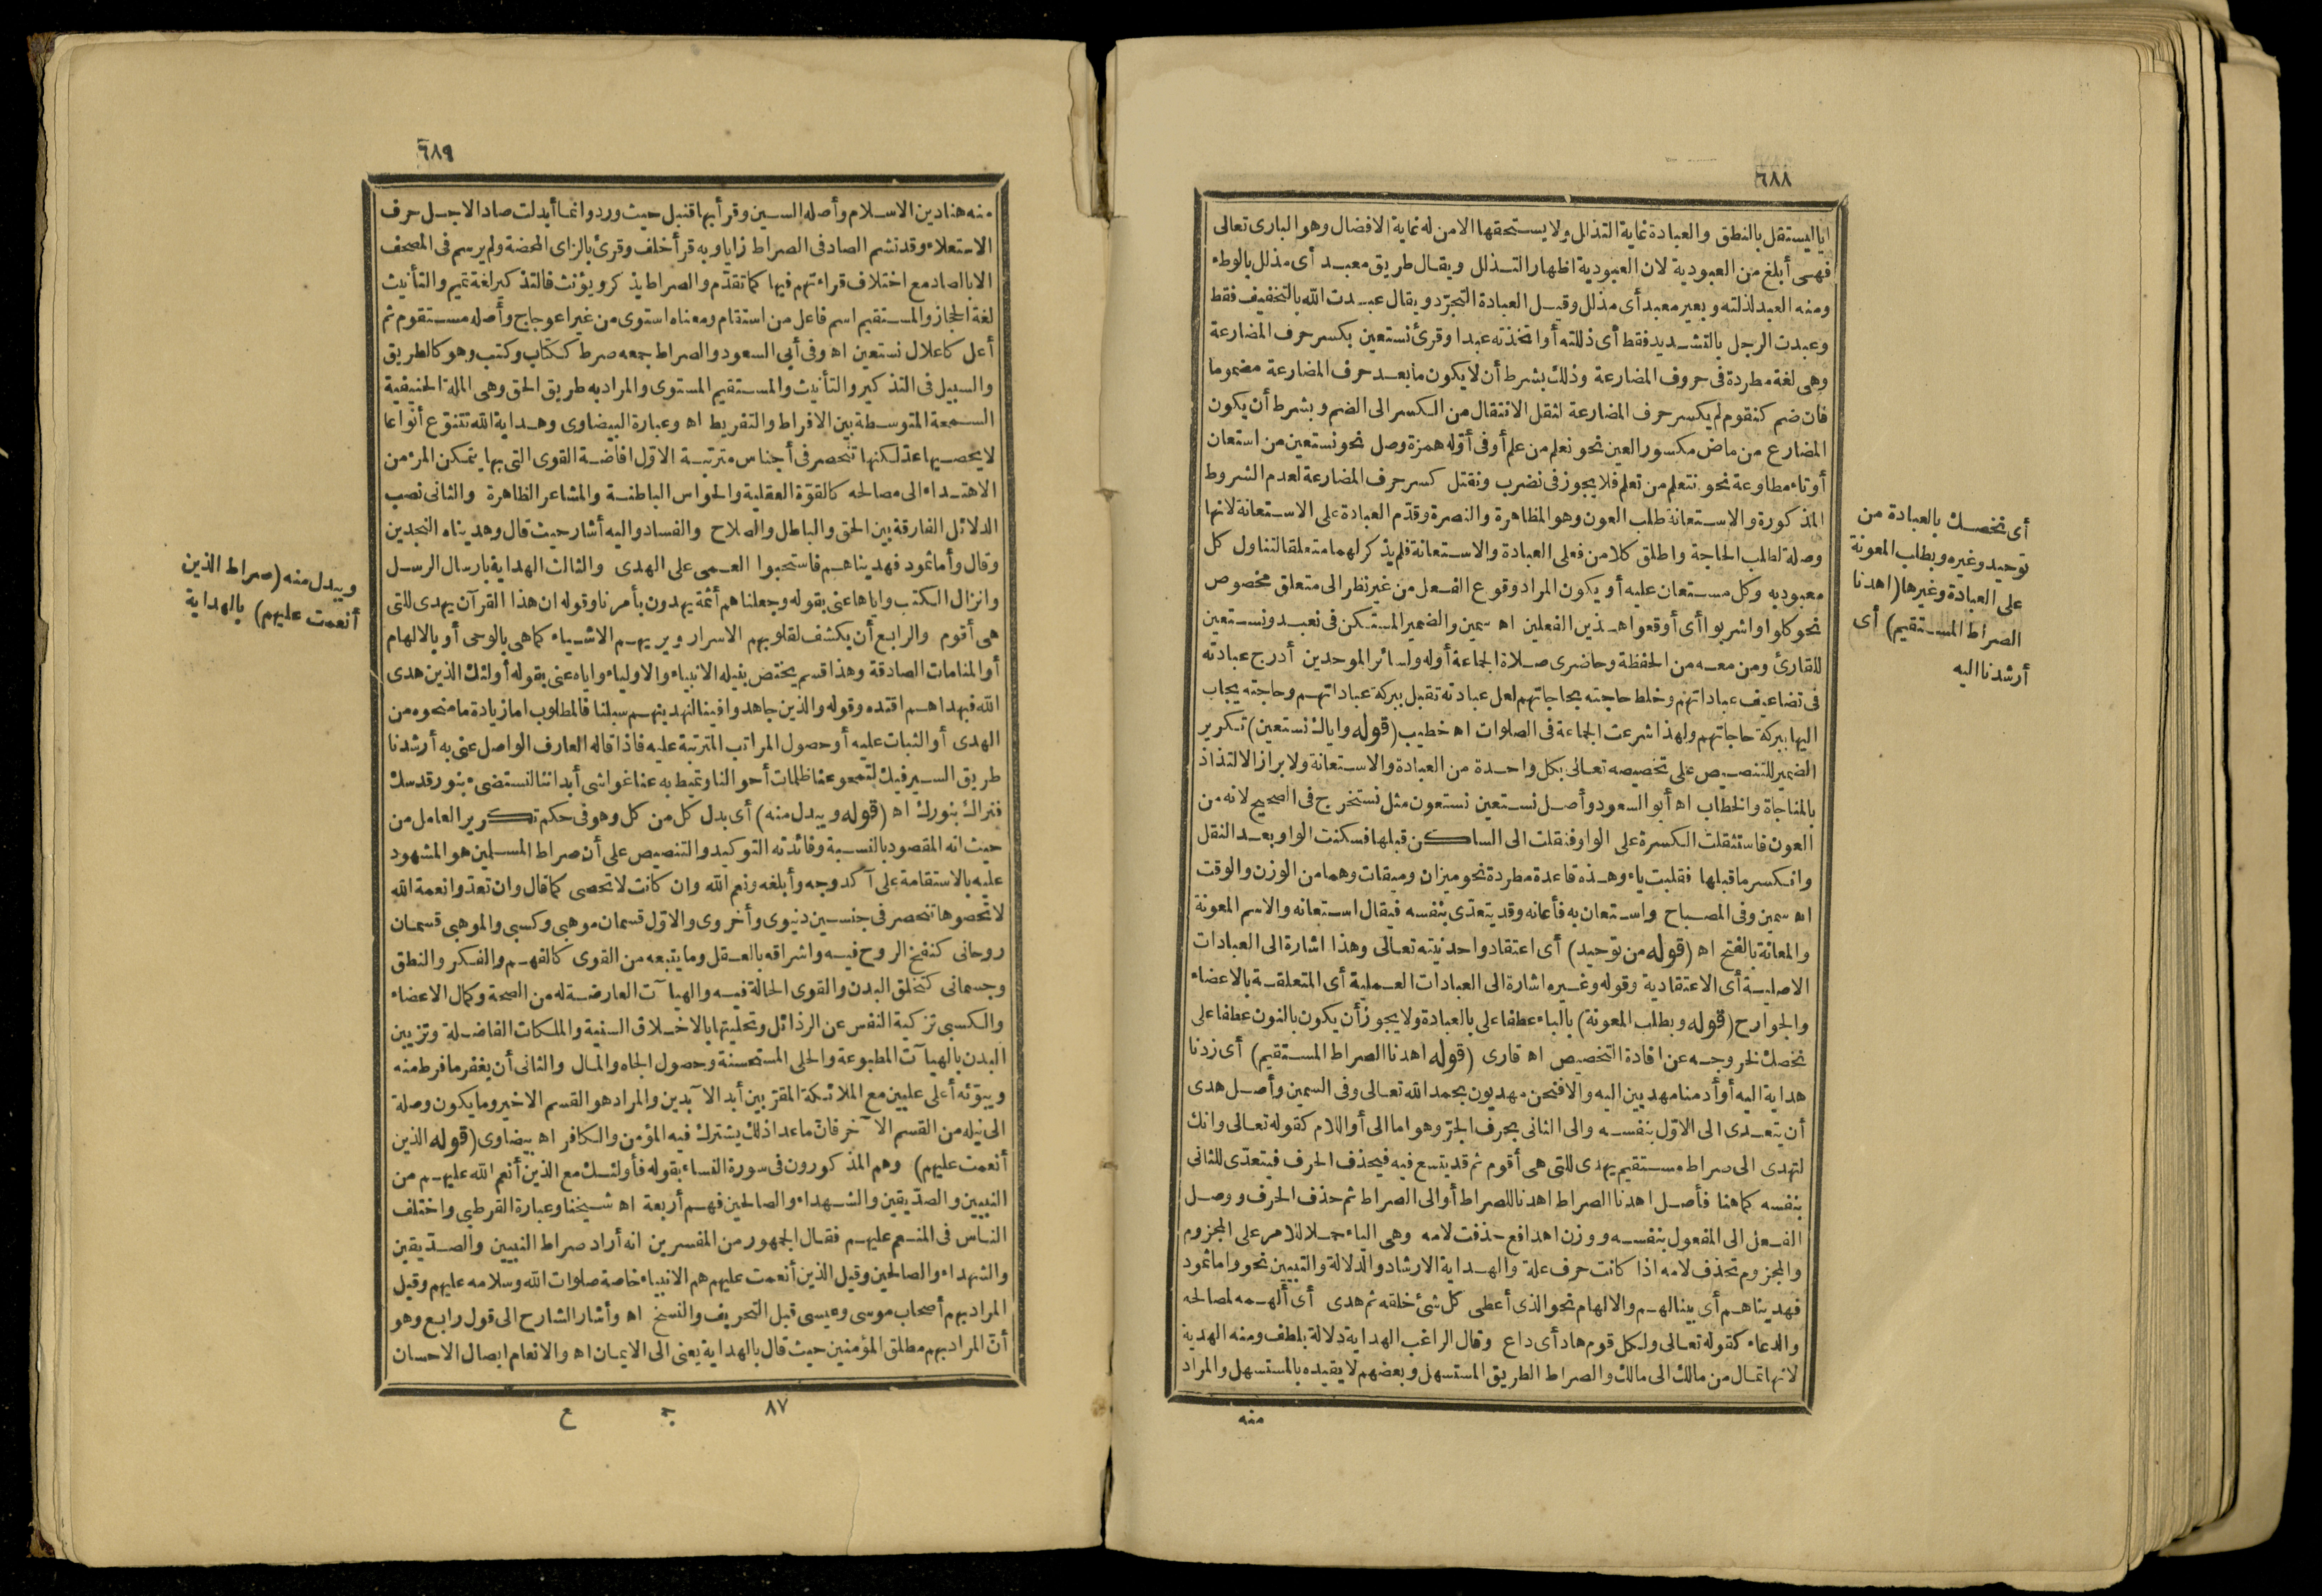 ٦٨٨
اياك يستقل بالنطق والعبادة غاية التذلل ولا يستحقها الا من له غاية الافضال وهو البارى تعالى
فهى أبلغ من العبودية لان العبودية اظهار التذلل ويقال طريق معبد أى مذلل بالوطء
ومنه العبد لذلته وبعير معبد أى مذلل وقيل العبادة التجرّد ويقال عبدت الله بالتخفيف فقط
وعبدت الرجل بالتشديد فقط أى ذللته أو اتخذته عبدا وقرئ نستعين بكسر حرف المضارعة
وهى لغة مطردة فى حروف المضارعة وذلك بشرط أن لا يكون ما بعد حرف المضارعة مضموما
فان ضم كنقوم لم يكسر حرف المضارعة لثقل الانتقال من الكسر الى الضم وبشرط أن يكون
المضارع من ماض مكسور العين نحو نعلم من علم أو فى أوّله همزة وصل نحو نستعين من استعان
أو تاء مطاوعة نحو نتعلم من تعلم فلا يجوز فى نضرب ونقتل كسر حرف المضارعة لعدم الشروط
المذكورة والاستعانة طلب العون وهو المظاهرة والنصرة وقدّم العبادة على الاستعانة لانها
وصلة لطلب الحاجة واطلق كلا من فعلى العبادة والاستعانة فلم يذكر لهما متعلقا لتناول كل
معبود به وكل مستعان عليه أو يكون المراد وقوع الفعل من غير نظر الى متعلق مخصوص
نحو كلوا واشربوا أى أوقعوا هذين الفعلين اه سمين والضمير المستكن فى نعبد ونستعين
للقارئ ومن معه من الحفظة وحاضرى صلاة الجماعة أوله ولسائر الموحدين أدرج عبادته
فى تضاعيف عباداتهم وخلط حاجته بحاجاتهم لعل عبادته تقبل ببركة عباداتهم وحاجته يجاب
اليها ببركة حاجاتهم ولهذا شرعت الجماعة فى الصلوات اه خطيب (قوله واياك نستعين) تكرير
الضمير للتنصيص على تخصيصه تعالى بكل واحدة من العبادة والاستعانة ولابراز الالتذاذ
بالمناجاة والخطاب اه أبو السعود وأصل نستعين نستعون مثل نستخرج فى الصحيح لانه من
العون فاستثقلت الكسرة على الواو فنقلت الى الساكن قبلها فسكنت الواو بعد النقل
وانكسر ما قبلها فقلبت ياء وهذه قاعدة مطردة نحو ميزان وميقات وهما من الوزن والوقت
اه سمين وفى المصباح واستعان به فأعانه وقد يتعدّى بنفسه فيقال استعانه والاسم المعونة
والمعانة بالفتح اه (قوله من توحيد) أى اعتقاد واحدنيته تعالى وهذا اشارة الى العبادات
الاصلية أى الاعتقادية وقوله وغيره اشارة الى العبادات العملية أى المتعلقة بالاعضاء
والجوارح (قوله وبطلب المعونة) بالباء عطفا على بالعبادة ولا يجوز أن يكون بالنون عطفا على
نخصك لخروجه عن افادة التخصيص اه قارى (قوله اهدنا الصراط المستقيم) أى زدنا
هداية اليه أو أدمنا مهديين اليه والا فنحن مهديون بحمد الله تعالى وفى السمين وأصل هدى
أن يتعدى الى الاوّل بنفسه والى الثانى بحرف الجرّ وهو اما الى أو اللام كقوله تعالى وانك
لتهدى الى صراط مستقيم يهدى للتى هى أقوم ثم قد يتسع فيه فيحذف الحرف فيتعدّى للثانى
بنفسه كما هنا فأصل اهدنا الصراط اهدنا للصراط أو الى الصراط ثم حذف الحرف ووصل
الفعل الى المفعول بنفسه ووزن اهد افع حذفت لامه وهى الياء حملا للامر على المجزوم
والمجزوم تحذف لامه اذا كانت حرف علة والهداية الارشاد والدلالة والتبيين نحو واما ثمود
فهديناهم أى بينا لهم والالهام نحو الذى أعطى كل شئ خلقه ثم هدى أى ألهمه لمصالحه
والدعاء كقوله تعالى ولكل قوم هاد أى داع وقال الراغب الهداية دلالة بلطف ومنه الهدية
لانها تمال من مالك الى مالك والصراط الطريق المستسهل وبعضهم لا يقيده بالمستسهل والمراد
منه
أى نخصك بالعبادة من
توحيد وغيره وبطلب المعونة
على العبادة وغيرها (اهدنا
الصراط المستقيم) أى
أرشدنا اليه
٦٨٩
منه هنا دين الاسلام وأصله السين وقرأ بها قنبل حيث ورد وانما أبدلت صادا لاجل حرف
الاستعلاء وقد تشم الصاد فى الصراط زايا وبه قرأ خلف وقرئ بالزاى المحضة ولم يرسم فى المصحف
الا بالصاد مع اختلاف قراءتهم فيها كما تقدّم والصراط يذكر ويؤنث فالتذكير لغة تميم والتأنيث
لغة الحجاز والمستقيم اسم فاعل من استقام ومعناه استوى من غير اعوجاج وأصله مستقوم ثم
أعل كاعلال نستعين اه وفى أبى السعود والصراط جمعه صرط ككتاب وكتب وهو كالطريق
والسبيل فى التذكير والتأنيث والمستقيم المستوى والمراد به طريق الحق وهى الملة الحنيفية
السمعة المتوسطة بين الافراط والتفريط اه وعبارة البيضاوى وهداية الله تتنوّع أنواعا
لا يحصيها عدّ لكنها تنحصر فى أجناس مترتبة الاوّل افاضة القوى التى بها يتمكن المرء من
الاهتداء الى مصالحه كالقوّة العقلية والحواس الباطنة والمشاعر الظاهرة والثانى نصب
الدلائل الفارقة بين الحق والباطل والصلاح والفساد واليه أشار حيث قال وهديناه النجدين
وقال وأما ثمود فهديناهم فاستحبوا العمى على الهدى والثالث الهداية بارسال الرسل
وانزال الكتب واياها عنى بقوله وجعلناهم أئمة يهدون بأمرنا وقوله ان هذا القرآن يهدى للتى
هى أقوم والرابع أن يكشف لقلوبهم الاسرار ويريهم الاشياء كما هى بالوحى أو بالالهام
أو المنامات الصادقة وهذا قسم يختص بنيله الانبياء والاولياء واياه عنى بقوله أولئك الذين هدى
الله فبهداهم اقتده وقوله والذين جاهدوا فينا لنهدينهم سبلنا فالمطلوب اما زيادة ما منحوه من
الهدى أو الثبات عليه أو حصول المراتب المترتبة عليه فاذا قاله العارف الواصل عنى به أرشدنا
طريق السير فيك لتمحو عنا ظلمات أحوالنا وتميط به عنا غواشى أبداننا لنستضىء بنور قدسك
فنراك بنورك اه (قوله ويبدل منه) أى بدل كل من كل وهو فى حكم تكرير العامل من
حيث انه المقصود بالنسبة وفائدته التوكيد والتنصيص على أن صراط المسلمين هو المشهود
عليه بالاستقامة على آكد وجه وأبلغه ونعم الله وان كانت لا تحصى كما قال وان تعدّوا نعمة الله
لا تحصوها تنحصر فى جنسين دنيوى وأخروى والاوّل قسمان موهبى وكسبى والموهبى قسمان
روحانى كنفخ الروح فيه واشراقه بالعقل وما يتبعه من القوى كالفهم والفكر والنطق
وجسمانى كتخلق البدن والقوى الحالة فيه والهيآت العارضة له من الصحة وكمال الاعضاء
والكسبى تزكية النفس عن الرذائل وتحليتها بالاخلاق السنية والملكات الفاضلة وتزيين
البدن بالهيآت المطبوعة والحلى المستحسنة وحصول الجاه والمال والثانى أن يغفر ما فرط منه
ويبوّئه أعلى عليين مع الملائكة المقرّبين أبد الآبدين والمراد هو القسم الاخير وما يكون وصلة
الى نيله من القسم الآخر فانّ ما عدا ذلك يشترك فيه المؤمن والكافر اه بيضاوى (قوله الذين
أنعمت عليهم) وهم المذكورون فى سورة النساء بقوله فأولئك مع الذين أنعم الله عليهم من
النبيين والصدّيقين والشهداء والصالحين فهم أربعة اه شيخنا وعبارة القرطبى واختلف
الناس فى المنعم عليهم فقال الجمهور من المفسرين انه أراد صراط النبيين والصدّيقين
والشهداء والصالحين وقيل الذين أنعمت عليهم هم الانبياء خاصة صلوات الله وسلامه عليهم وقيل
المراد بهم أصحاب موسى وعيسى قبل التحريف والنسخ اه وأشار الشارح الى قول رابع وهو
أنّ المراد بهم مطلق المؤمنين حيث قال بالهداية يعنى الى الايمان اه والانعام ايصال الاحسان
٨٧ ج ع
ويبدل منه (صراط الذين
أنعمت عليهم) بالهداية